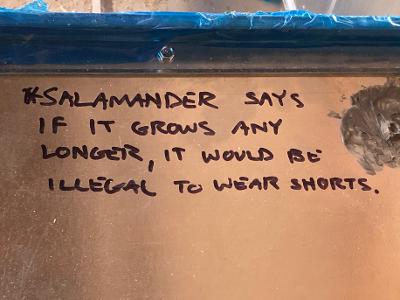 *SALAMANDER SAYS
IF IT GROWS ANY
LONGER, IT WOULD BE
ILLEGAL TO WEAR SHORTS.